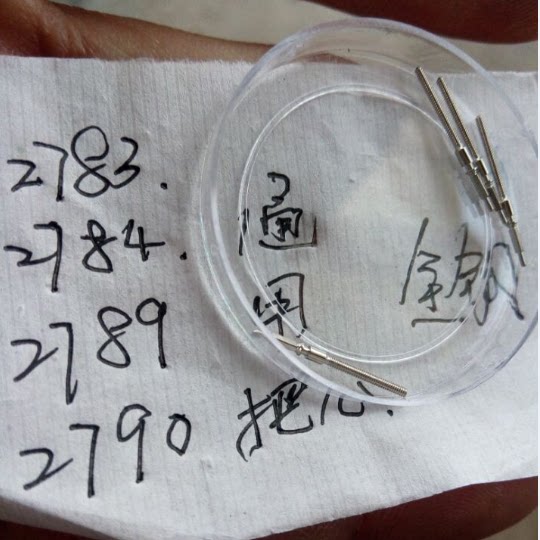 2783.
2784.
2789
2790
通用
把心.
全钢